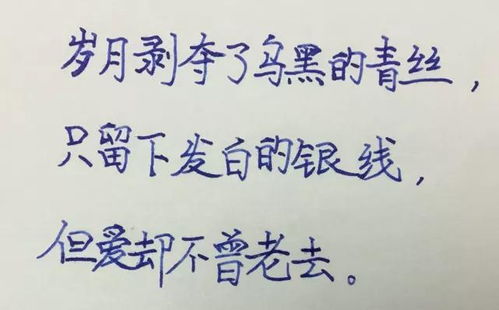 岁月剥夺了乌黑的青丝，
只留下发白的银线，
但爱却不曾老去。